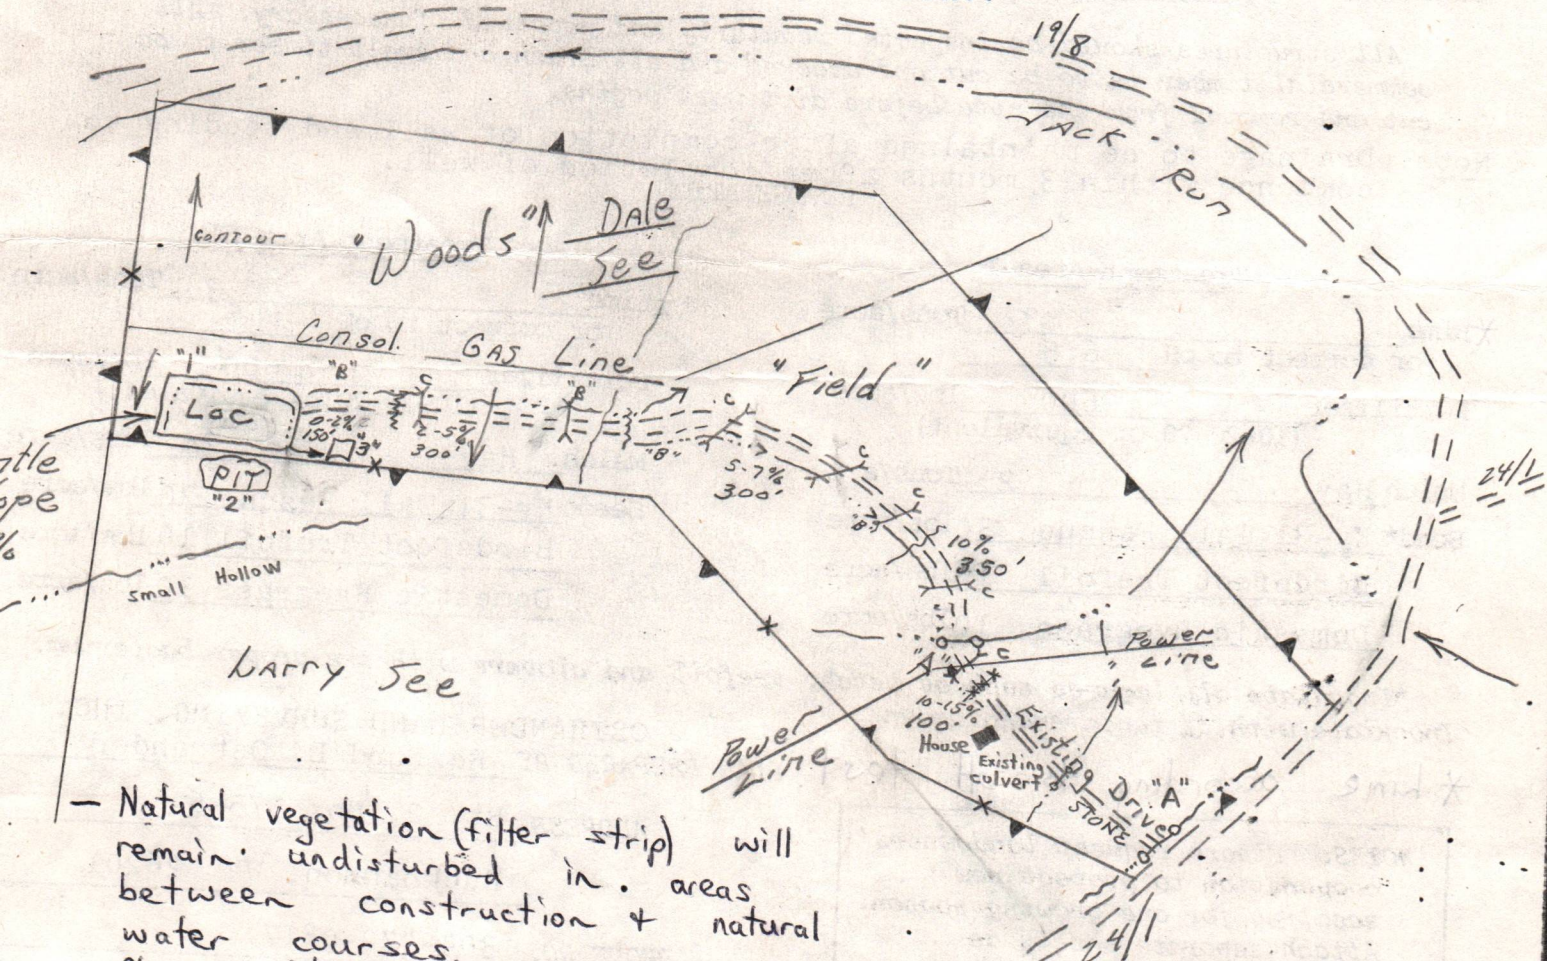 19/8
JACK Run
contour
"Woods"
Dale
See
Consol. Gas Line
"1"
"B"
C
"B"
Loc
0-2%
150'
"3"
2-5%
300'
"B"
"Field"
C
5-7%
300'
C
C
"B"
10%
350'
C
24/1
PIT
"2"
small Hollow
Larry See
"A"
C
Power
Line
10-15%
100'
House
Existing
culvert
Existing Drive
STONE
"A"
Power
Line
24/1
- Natural vegetation (filter strip) will
remain undisturbed in areas
between construction + natural
water courses.